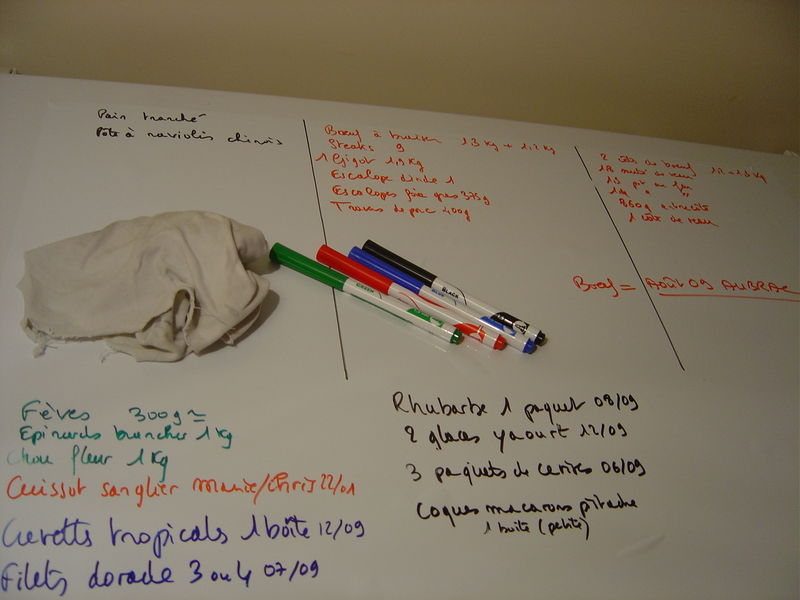 Pain tranché
Pâte à raviolis chinois
Bœuf à braiser 1,3 Kg + 1,2 Kg
Steaks 9
1 Gigot 1,9 Kg
Escalope dinde 1
Escalopes foie gras 375g
Travers de porc 400g
2 côtes de bœuf
860g
1 côte de veau
Bœuf = Août 09 AUBRAC
GREEN
BLUE
BLACK
Fèves 300g ≈
Epinards brancher 1 Kg
Chou fleur 1 Kg
Cuissot sanglier Mamie/Chris 22/01
Crevetts tropicals 1 boîte 12/09
Filets dorade 3 ou 4 07/09
Rhubarbe 1 paquet 08/09
2 glaces yaourt 12/09
3 paquets de cerises 06/09
Coques macarons pistache
1 boite (petite)